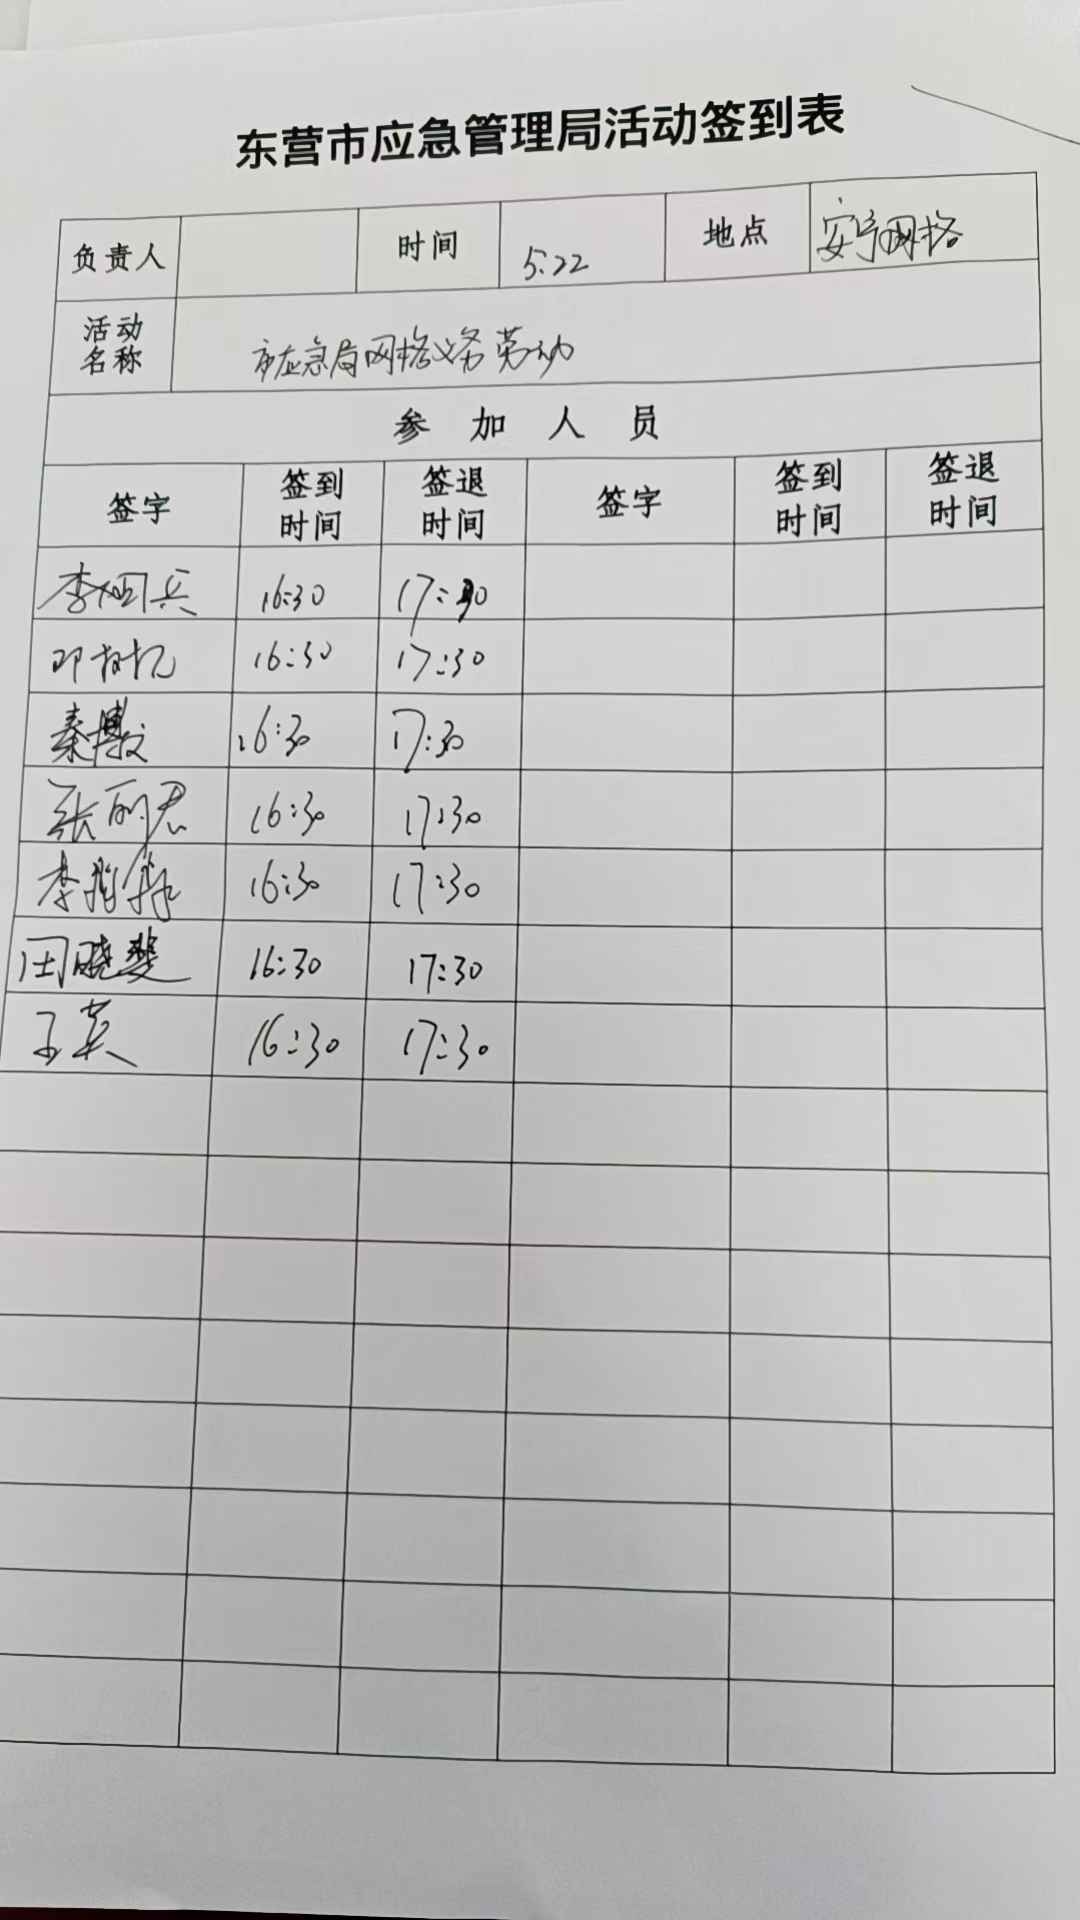 东营市应急管理局活动签到表
负责人 时间 5.22 地点 安宁网格
活动名称 市应急局网格义务劳动
参加人员
签字 签到时间 签退时间 签字 签到时间 签退时间
李 兵 16:30 17:30
邓 16:30 17:30
秦 16:30 17:30
张丽君 16:30 17:30
李 16:30 17:30
田晓斐 16:30 17:30
王英 16:30 17:30